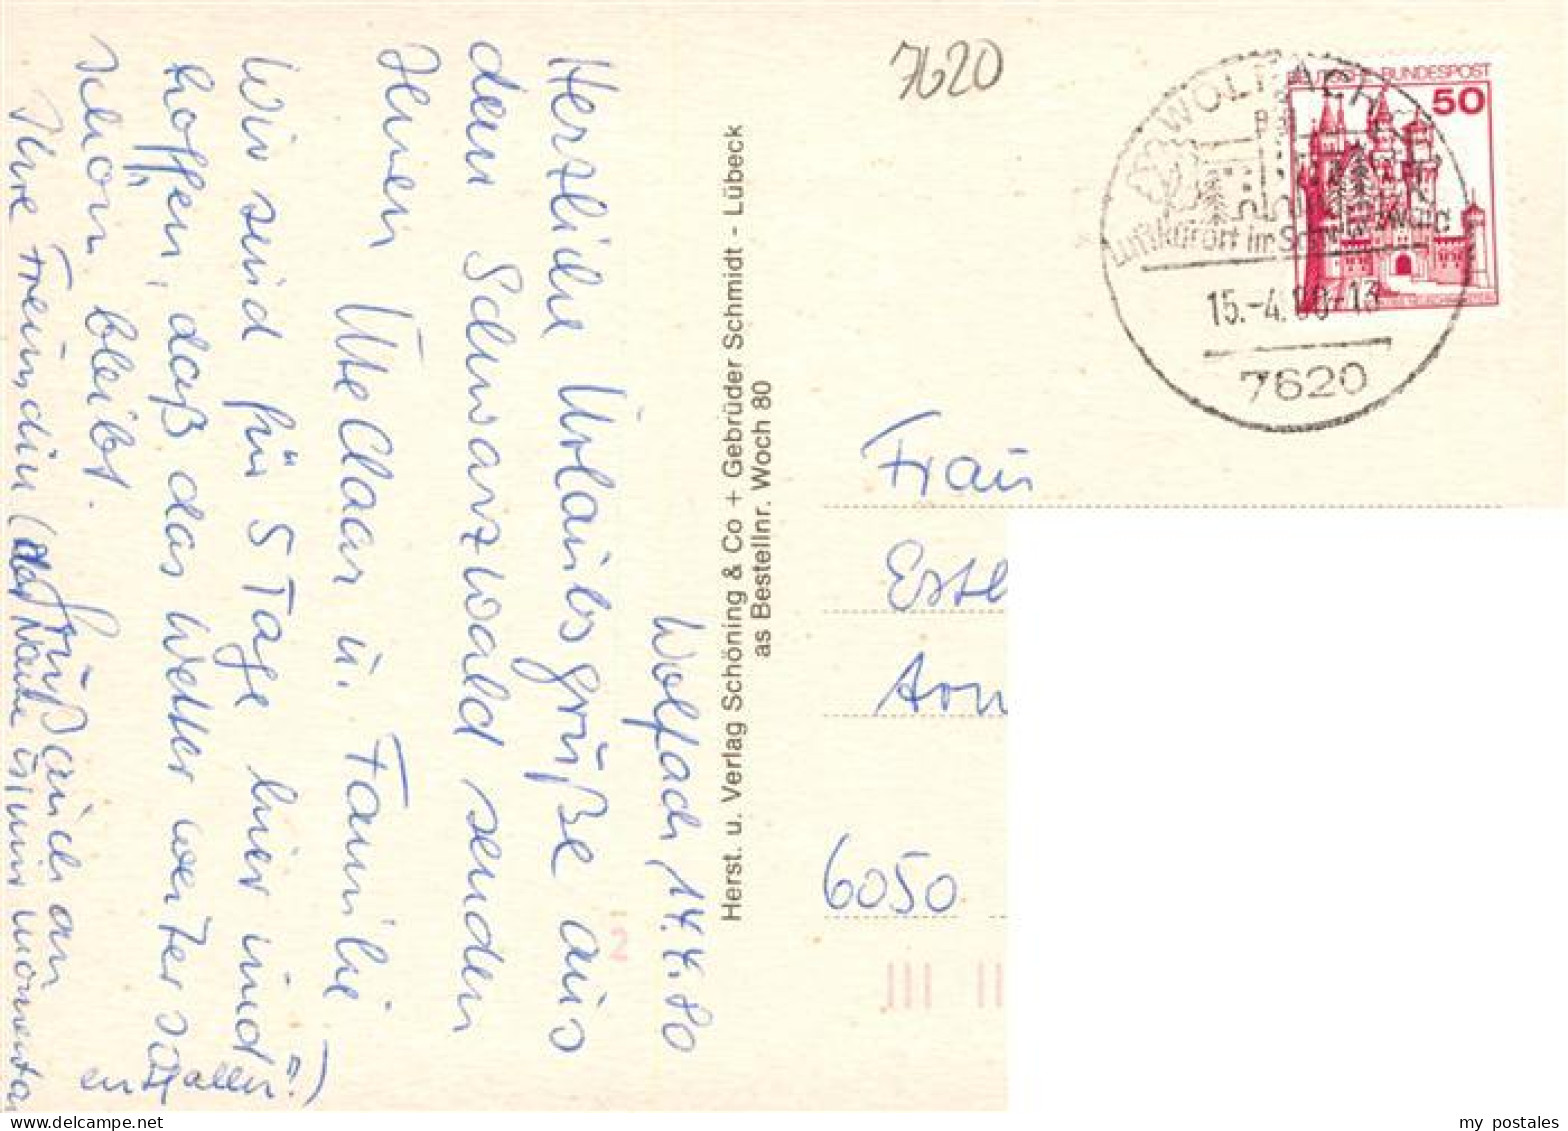 Wolfach, 14.4.80
Herzliche Urlaubsgrüße aus
dem Schwarzwald senden
Ihnen Ute Claar u. Familie
Wir sind für 5 Tage hier und
hoffen, daß das Wetter weiter so
schön bleibt.
Gruß auch an
Ihre Freundin (der Name ist mir momentan
entfallen!)
Herst. u. Verlag Schöning & Co + Gebrüder Schmidt - Lübeck
as Bestellnr. Woch 80
7620
DEUTSCHE BUNDESPOST
50
WOLFACH
Luftkurort im Schwarzwald
15.-4.80-13
7620
Frau
6050
my postales